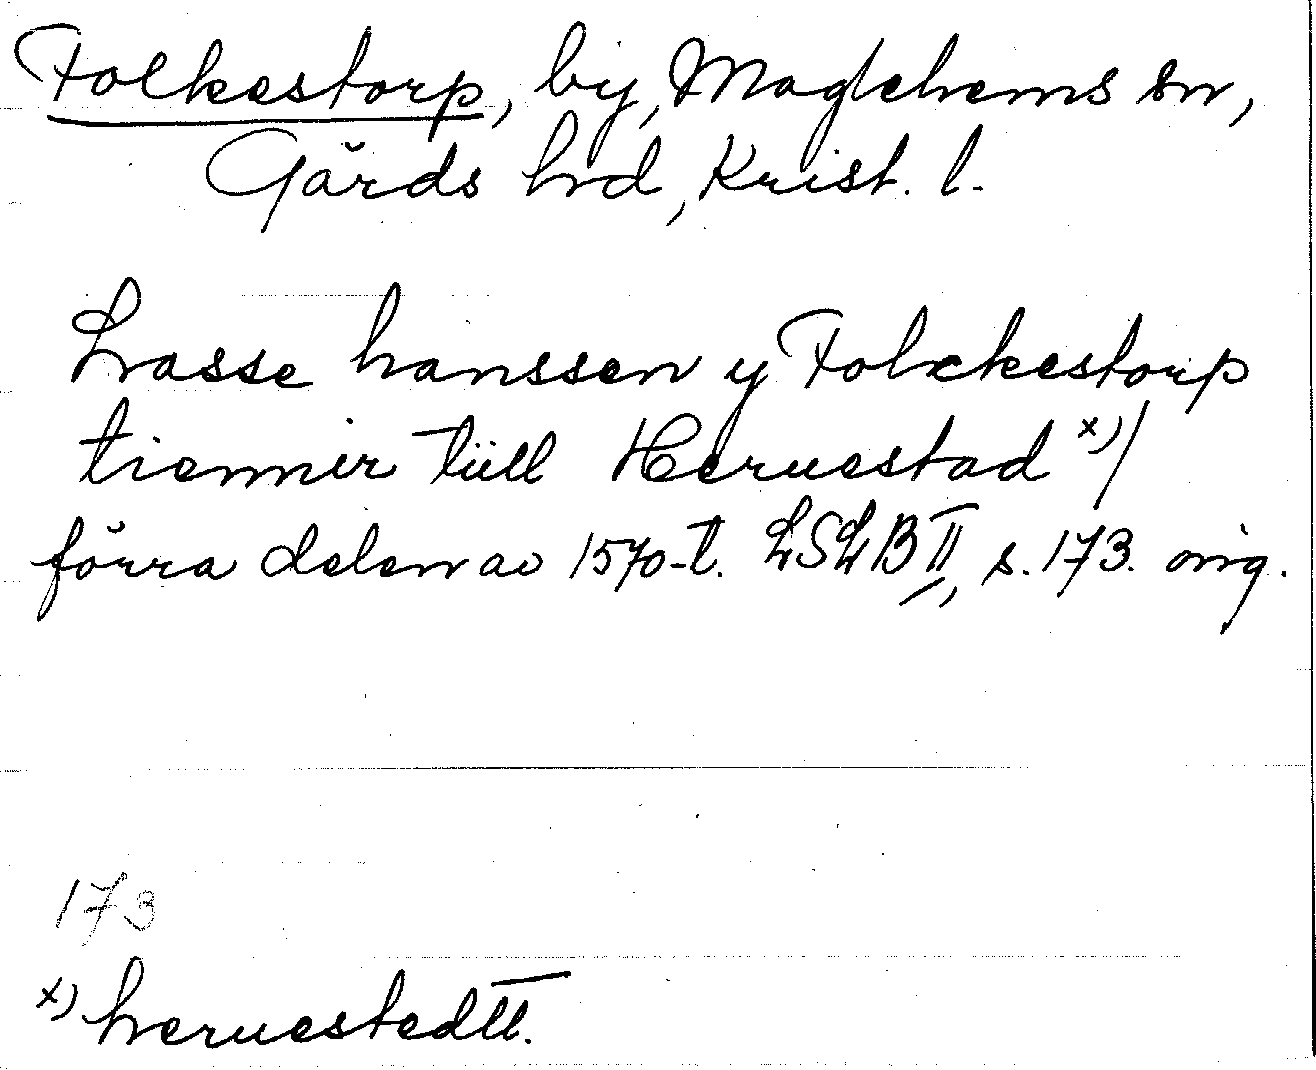 Folkestorp, by, Maglehems sn,
Gärds hrd, Krist. l.
Lasse hanssen y Folckestorp
tienner tiill Heruestad x)/
förra delen av 1570-t. LSLB II, s. 173. orig.
173
x) heruestedtt.